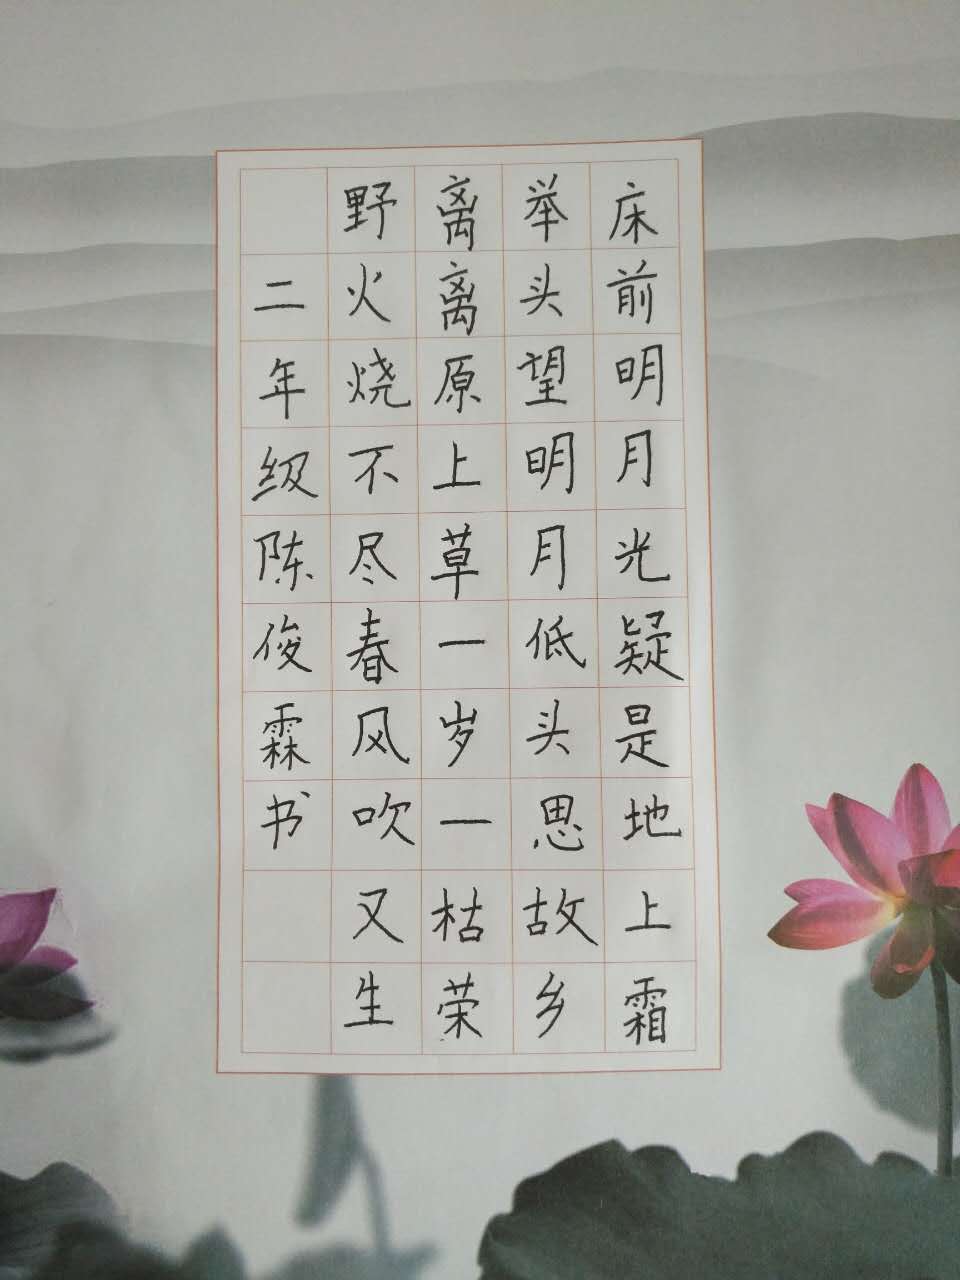 床前明月光疑是地上霜
举头望明月低头思故乡
离离原上草一岁一枯荣
野火烧不尽春风吹又生
二年级陈俊霖书